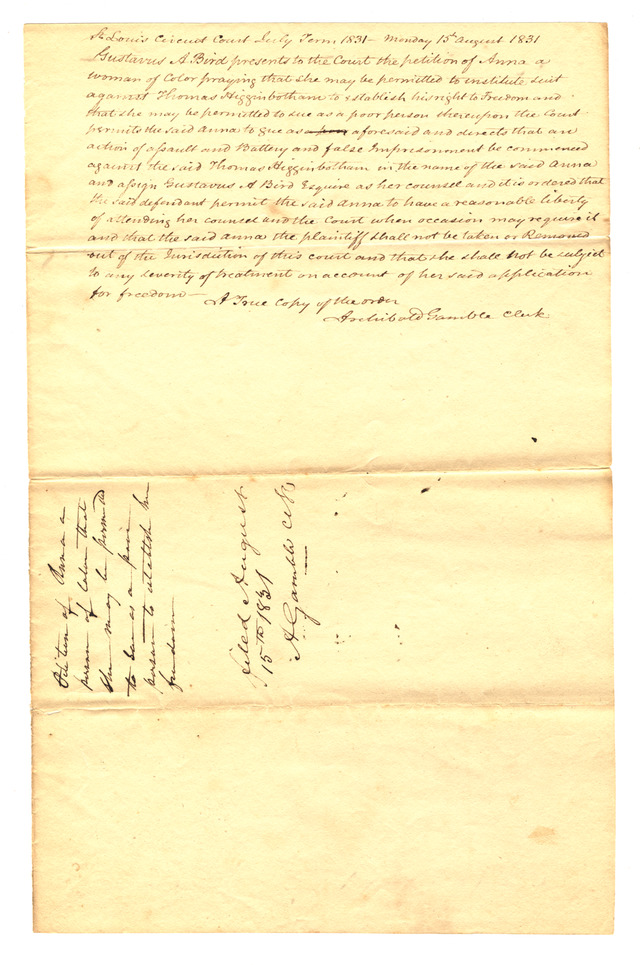 St Louis Circuit Court July Term 1831 – Monday 15th August 1831
Gustavus A Bird presents to the Court the petition of Anna a
woman of Color praying that she may be permitted to institute suit
against Thomas Higginbotham to establish his right to Freedom and
that she may be permitted to sue as a poor person thereupon the Court
permits the said Anna to sue as a poor aforesaid and directs that an
action of assault and Battery and false Imprisonment be commenced
against the said Thomas Higginbotham in the name of the said Anna
and assign Gustavus A Bird Esquire as her counsel and it is ordered that
the said defendant permit the said Anna to have a reasonable liberty
of attending her counsel and the Court when occasion may require it
and that the said Anna the plaintiff shall not be taken or Removed
out of the Jurisdiction of this court and that she shall not be subject
to any severity of treatment on account of her said application
for freedom —
A True Copy of the order
Archibald Gamble Clerk
Petition of Anna a
person of Color that
she may be permitted
to sue as a poor
person to establish her
freedom
filed August
15th 1831
A Gamble Clk